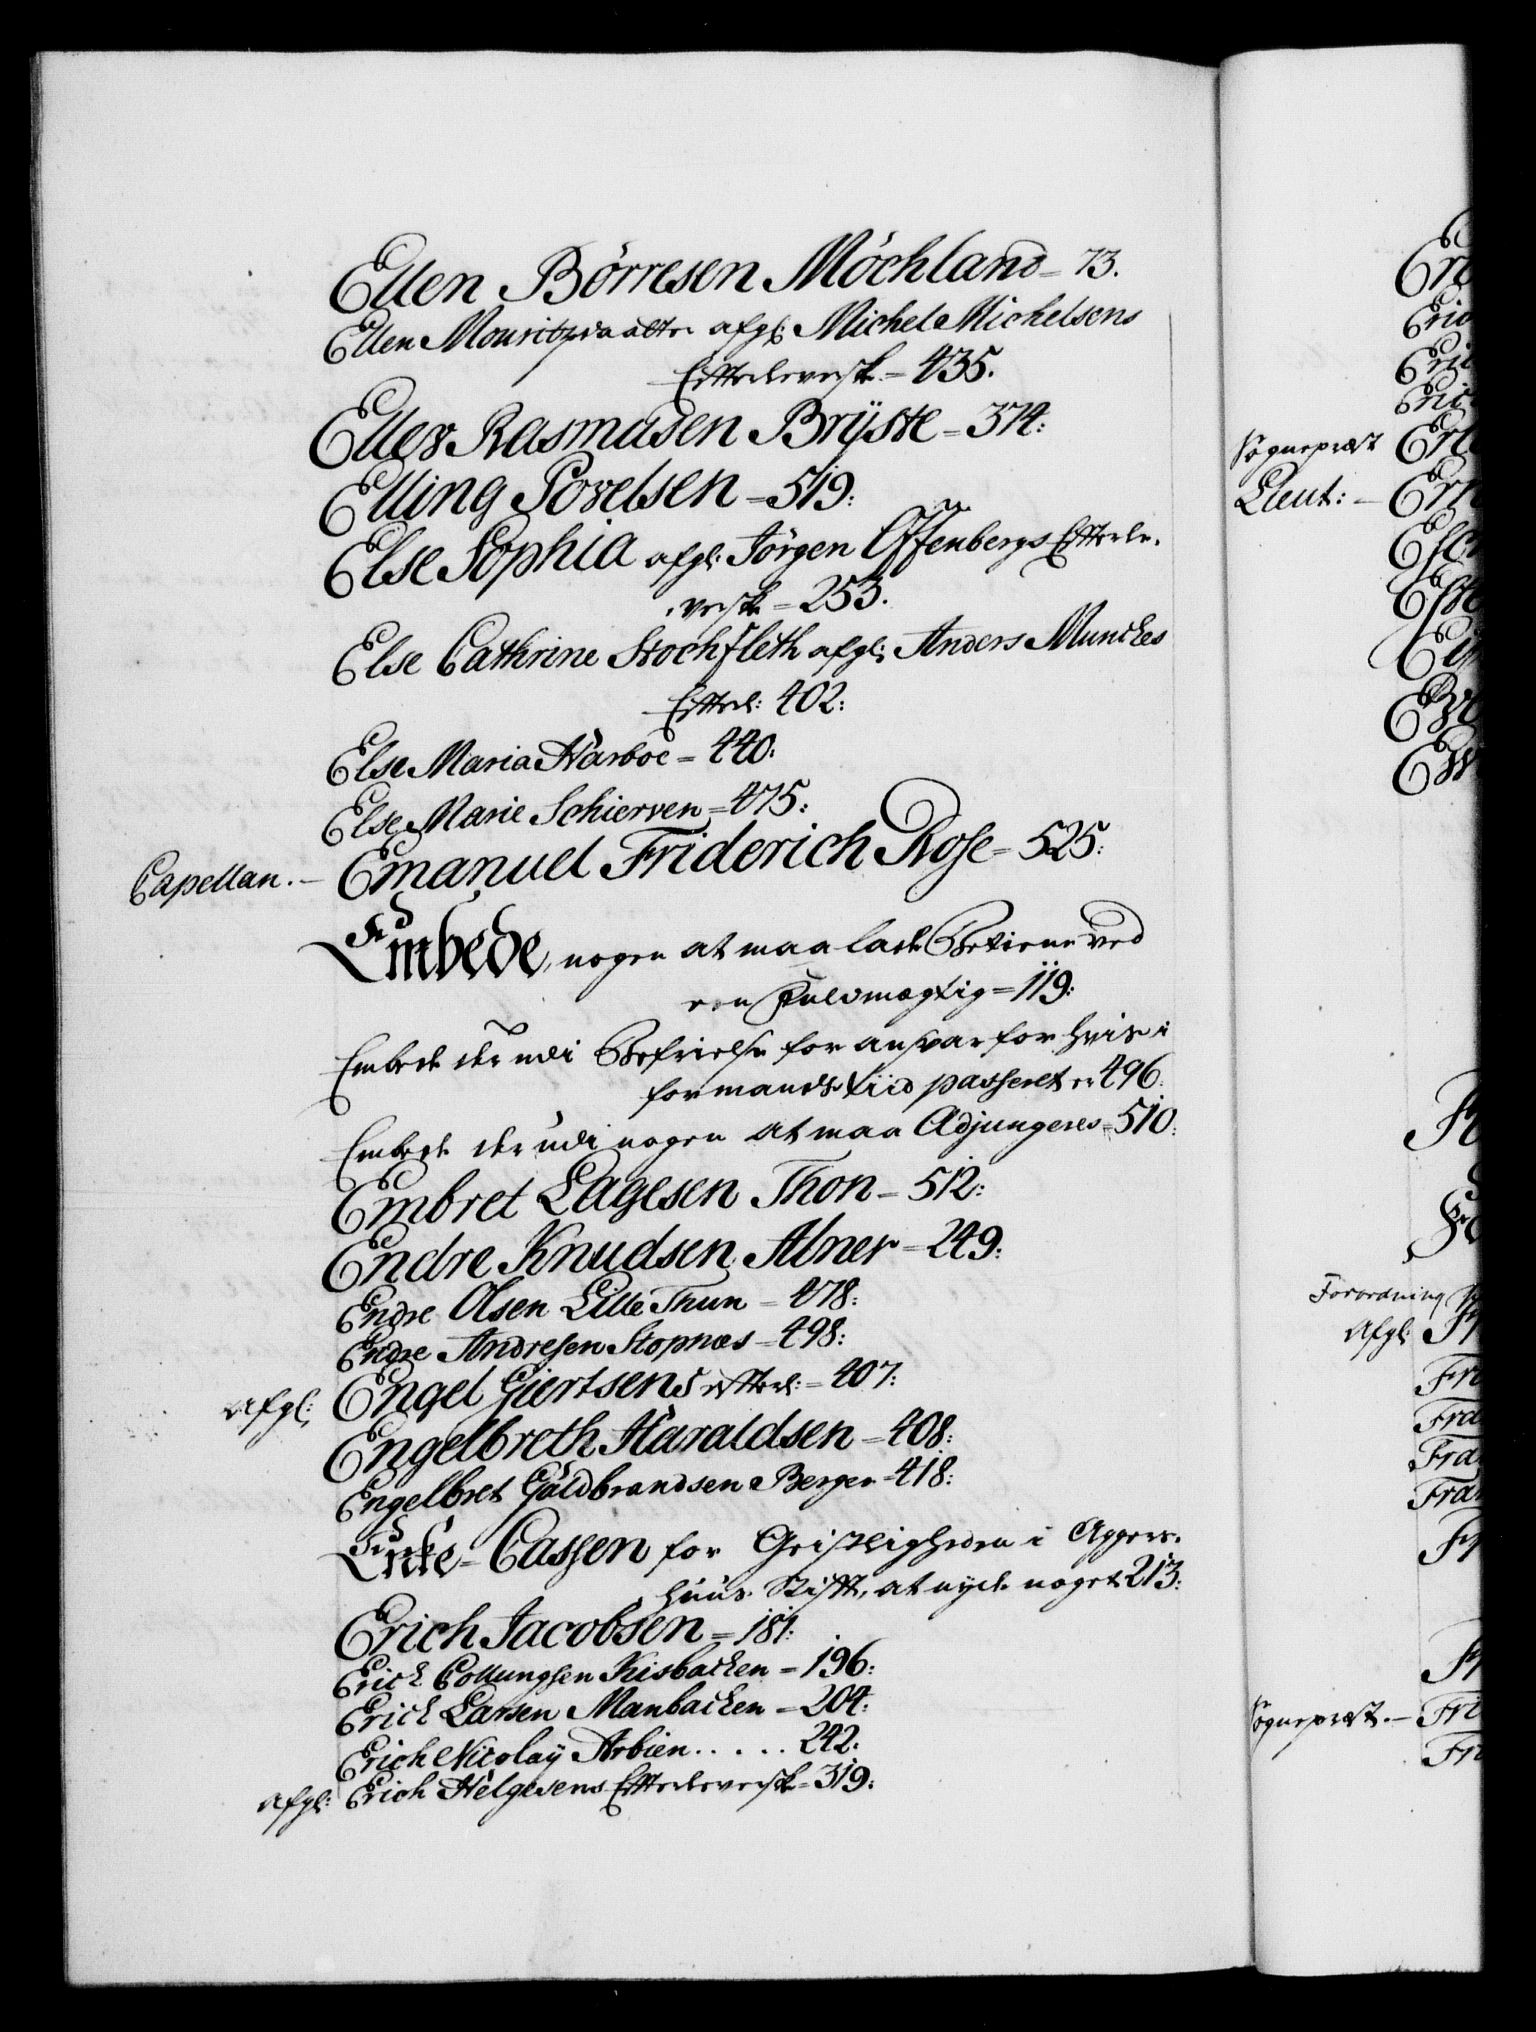 Ellen Börresen Möchland = 73.
Ellen Mouritzdaatter afgl: Michel Michelsens
Efterleverske = 435.
Eller Rasmusen Brÿske = 374:
Elling Povelsen = 519:
Else Sophia afgl: Jörgen Offenbergs Efterle-
verske = 253.
Else Cathrine Stochfleth afgl: Anders Munches
Efterl: 402:
Else Maria Harboe = 440:
Else Marie Schierven = 475:
Capellan. – Emanuel Friderich Rose = 525:
Embede, nogen at maa lade Betiene ved
een Fuldmægtig = 119:
Embede derudi Befrielse for ansvar for hvis i
formands tiid passeret er 496:
Embede derudi nogen at maa Adjungeres = 510:
Embret Lagesen Thon = 512:
Endre Knudsen Abner = 249:
Endre Olsen Lille Thun = 478:
Endre Andresen Stopnæs = 498:
afgl: Engel Giertsens efterl: = 407:
Engelbreth Haraldsen = 408:
Engelbret Guldbrandsen Berger = 418:
Enke-Cassen for Geistligheden i Agger-
huus Stift, at nyde noget 213:
Erich Jacobsen = 181:
Erich Collungsen Kisbacken = 196:
Erich Larsen Manbacken = 204:
Erich Nicolaÿ Arbien . . . . . 242:
afgl: Erich Helgesens Efterleverske = 319:
Sogneprest
Lieut: –
Forordning
Afgl:
Sogneprest. –